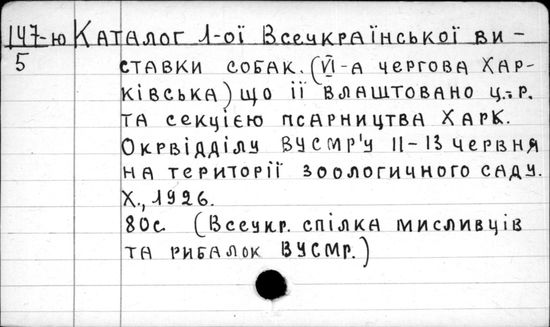 147-ю Каталог 1-ої Всеукраїнської ви-
5 ставки собак. (VI-а чергова Хар-
ківська) що її влаштовано ц.-р.
та секцією псарництва Харк.
Окрвідділу ВУСМР'у 11-13 червня
на території зоологичного саду.
Х., 1926.
80с. (Всеукр. спілка мисливців
та рибалок ВУСМР.)